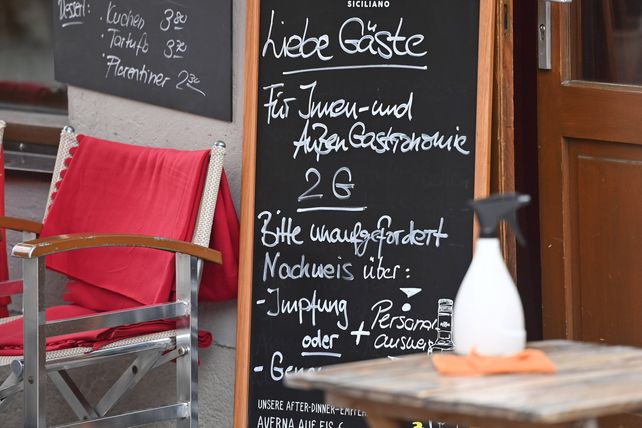 Dessert:
Kuchen 3,80
Tartufo 3,70
Florentiner 2,30
SICILIANO
Liebe Gäste
Für Innen- und
Außen Gastronomie
2 G
Bitte unaufgefordert
Nachweis über:
- Impfung
oder + Personal
ausweis
-
UNSERE AFTER-DINNER-
AVERNA AUF EIS